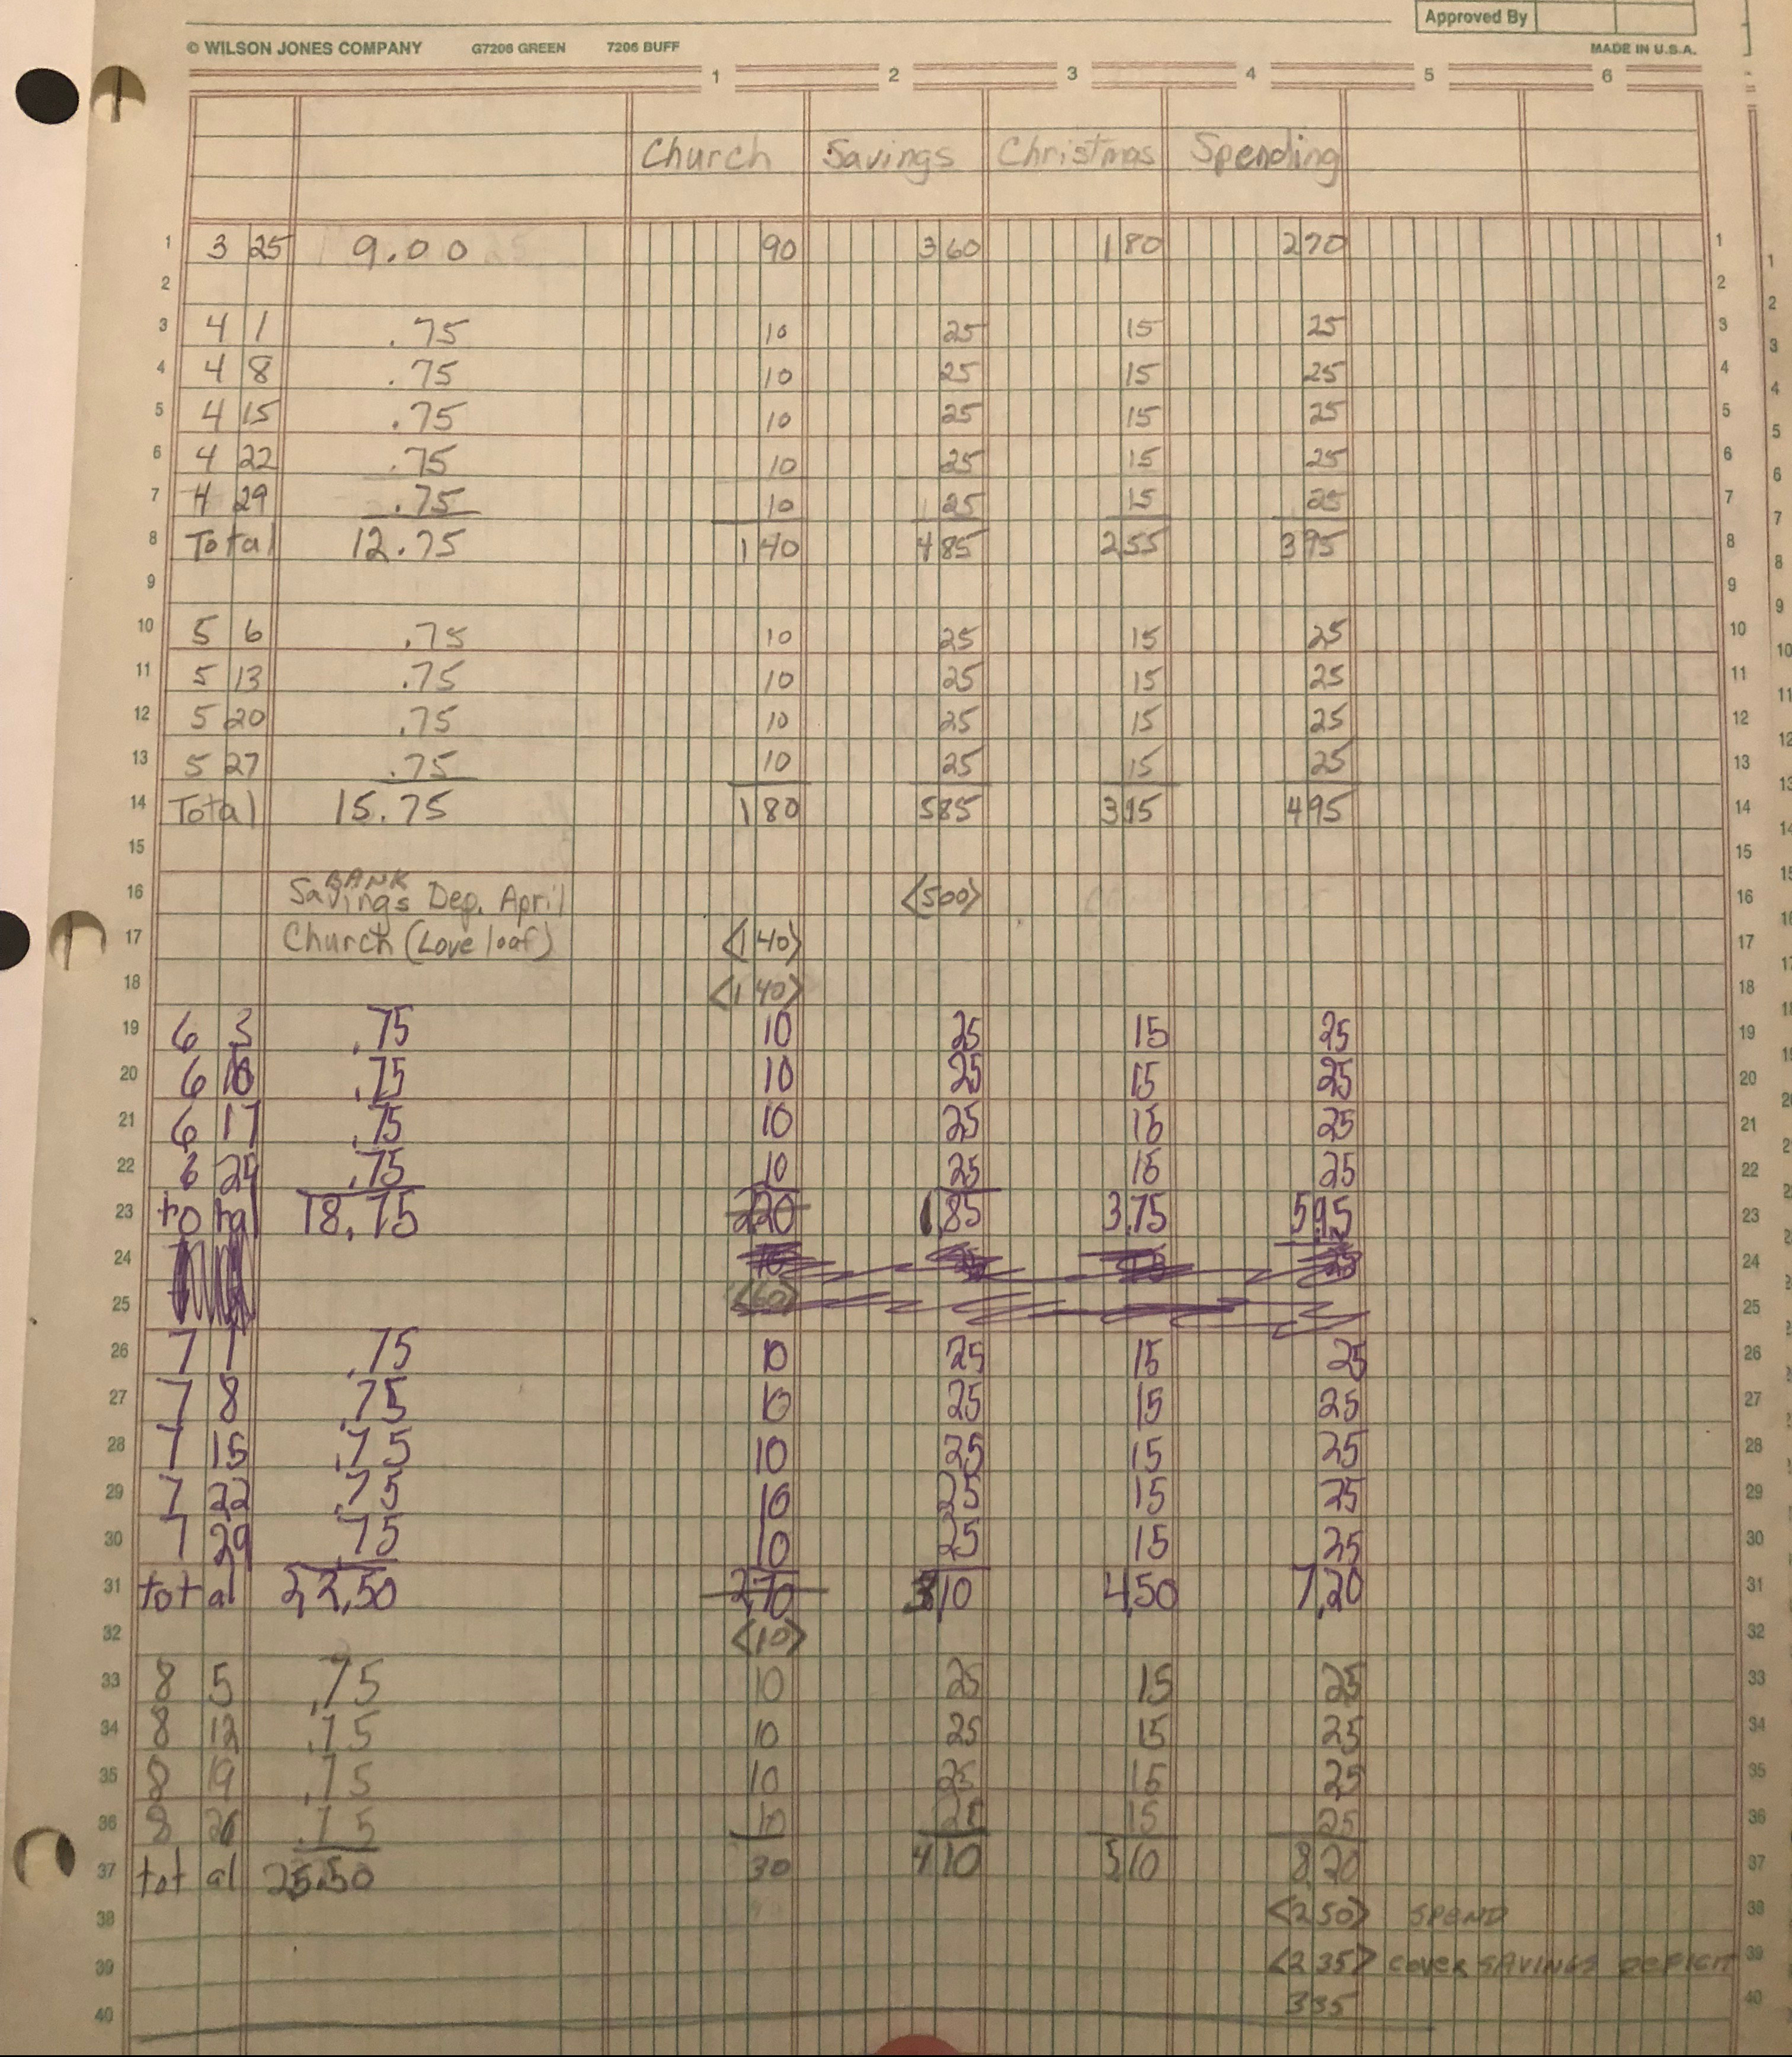 Approved By
© WILSON JONES COMPANY G7206 GREEN 7206 BUFF MADE IN U.S.A.
1 2 3 4 5 6
Church Savings Christmas Spending
1 3 25 9.00 90 360 180 270 1
2 2
3 4 1 .75 10 25 15 25 3
4 4 8 .75 10 25 15 25 4
5 4 15 .75 10 25 15 25 5
6 4 22 .75 10 25 15 25 6
7 4 29 .75 10 25 15 25 7
8 Total 12.75 140 485 255 395 8
9 9
10 5 6 .75 10 25 15 25 10
11 5 13 .75 10 25 15 25 11
12 5 20 .75 10 25 15 25 12
13 5 27 .75 10 25 15 25 13
14 Total 15.75 180 585 315 495 14
15 15
16 Savings BANK Dep. April <500> 16
17 Church (Love loaf) <140> 17
18 <140> 18
19 6 3 .75 10 25 15 25 19
20 6 10 .75 10 25 15 25 20
21 6 17 .75 10 25 15 25 21
22 6 24 .75 10 25 15 25 22
23 total 18.75 220 1,85 3,75 5,95 23
24 24
25 <60> 25
26 7 1 .75 10 25 15 25 26
27 7 8 .75 10 25 15 25 27
28 7 15 .75 10 25 15 25 28
29 7 22 .75 10 25 15 25 29
30 7 29 .75 10 25 15 25 30
31 total 22,50 2,70 310 4,50 7,20 31
32 <10> 32
33 8 5 .75 10 25 15 25 33
34 8 12 .75 10 25 15 25 34
35 8 19 .75 10 25 15 25 35
36 8 26 .75 10 25 15 25 36
37 total 25.50 30 410 510 8,20 37
38 <250> SPEND 38
39 <235> COVER SAVINGS DEFICIT 39
40 335 40